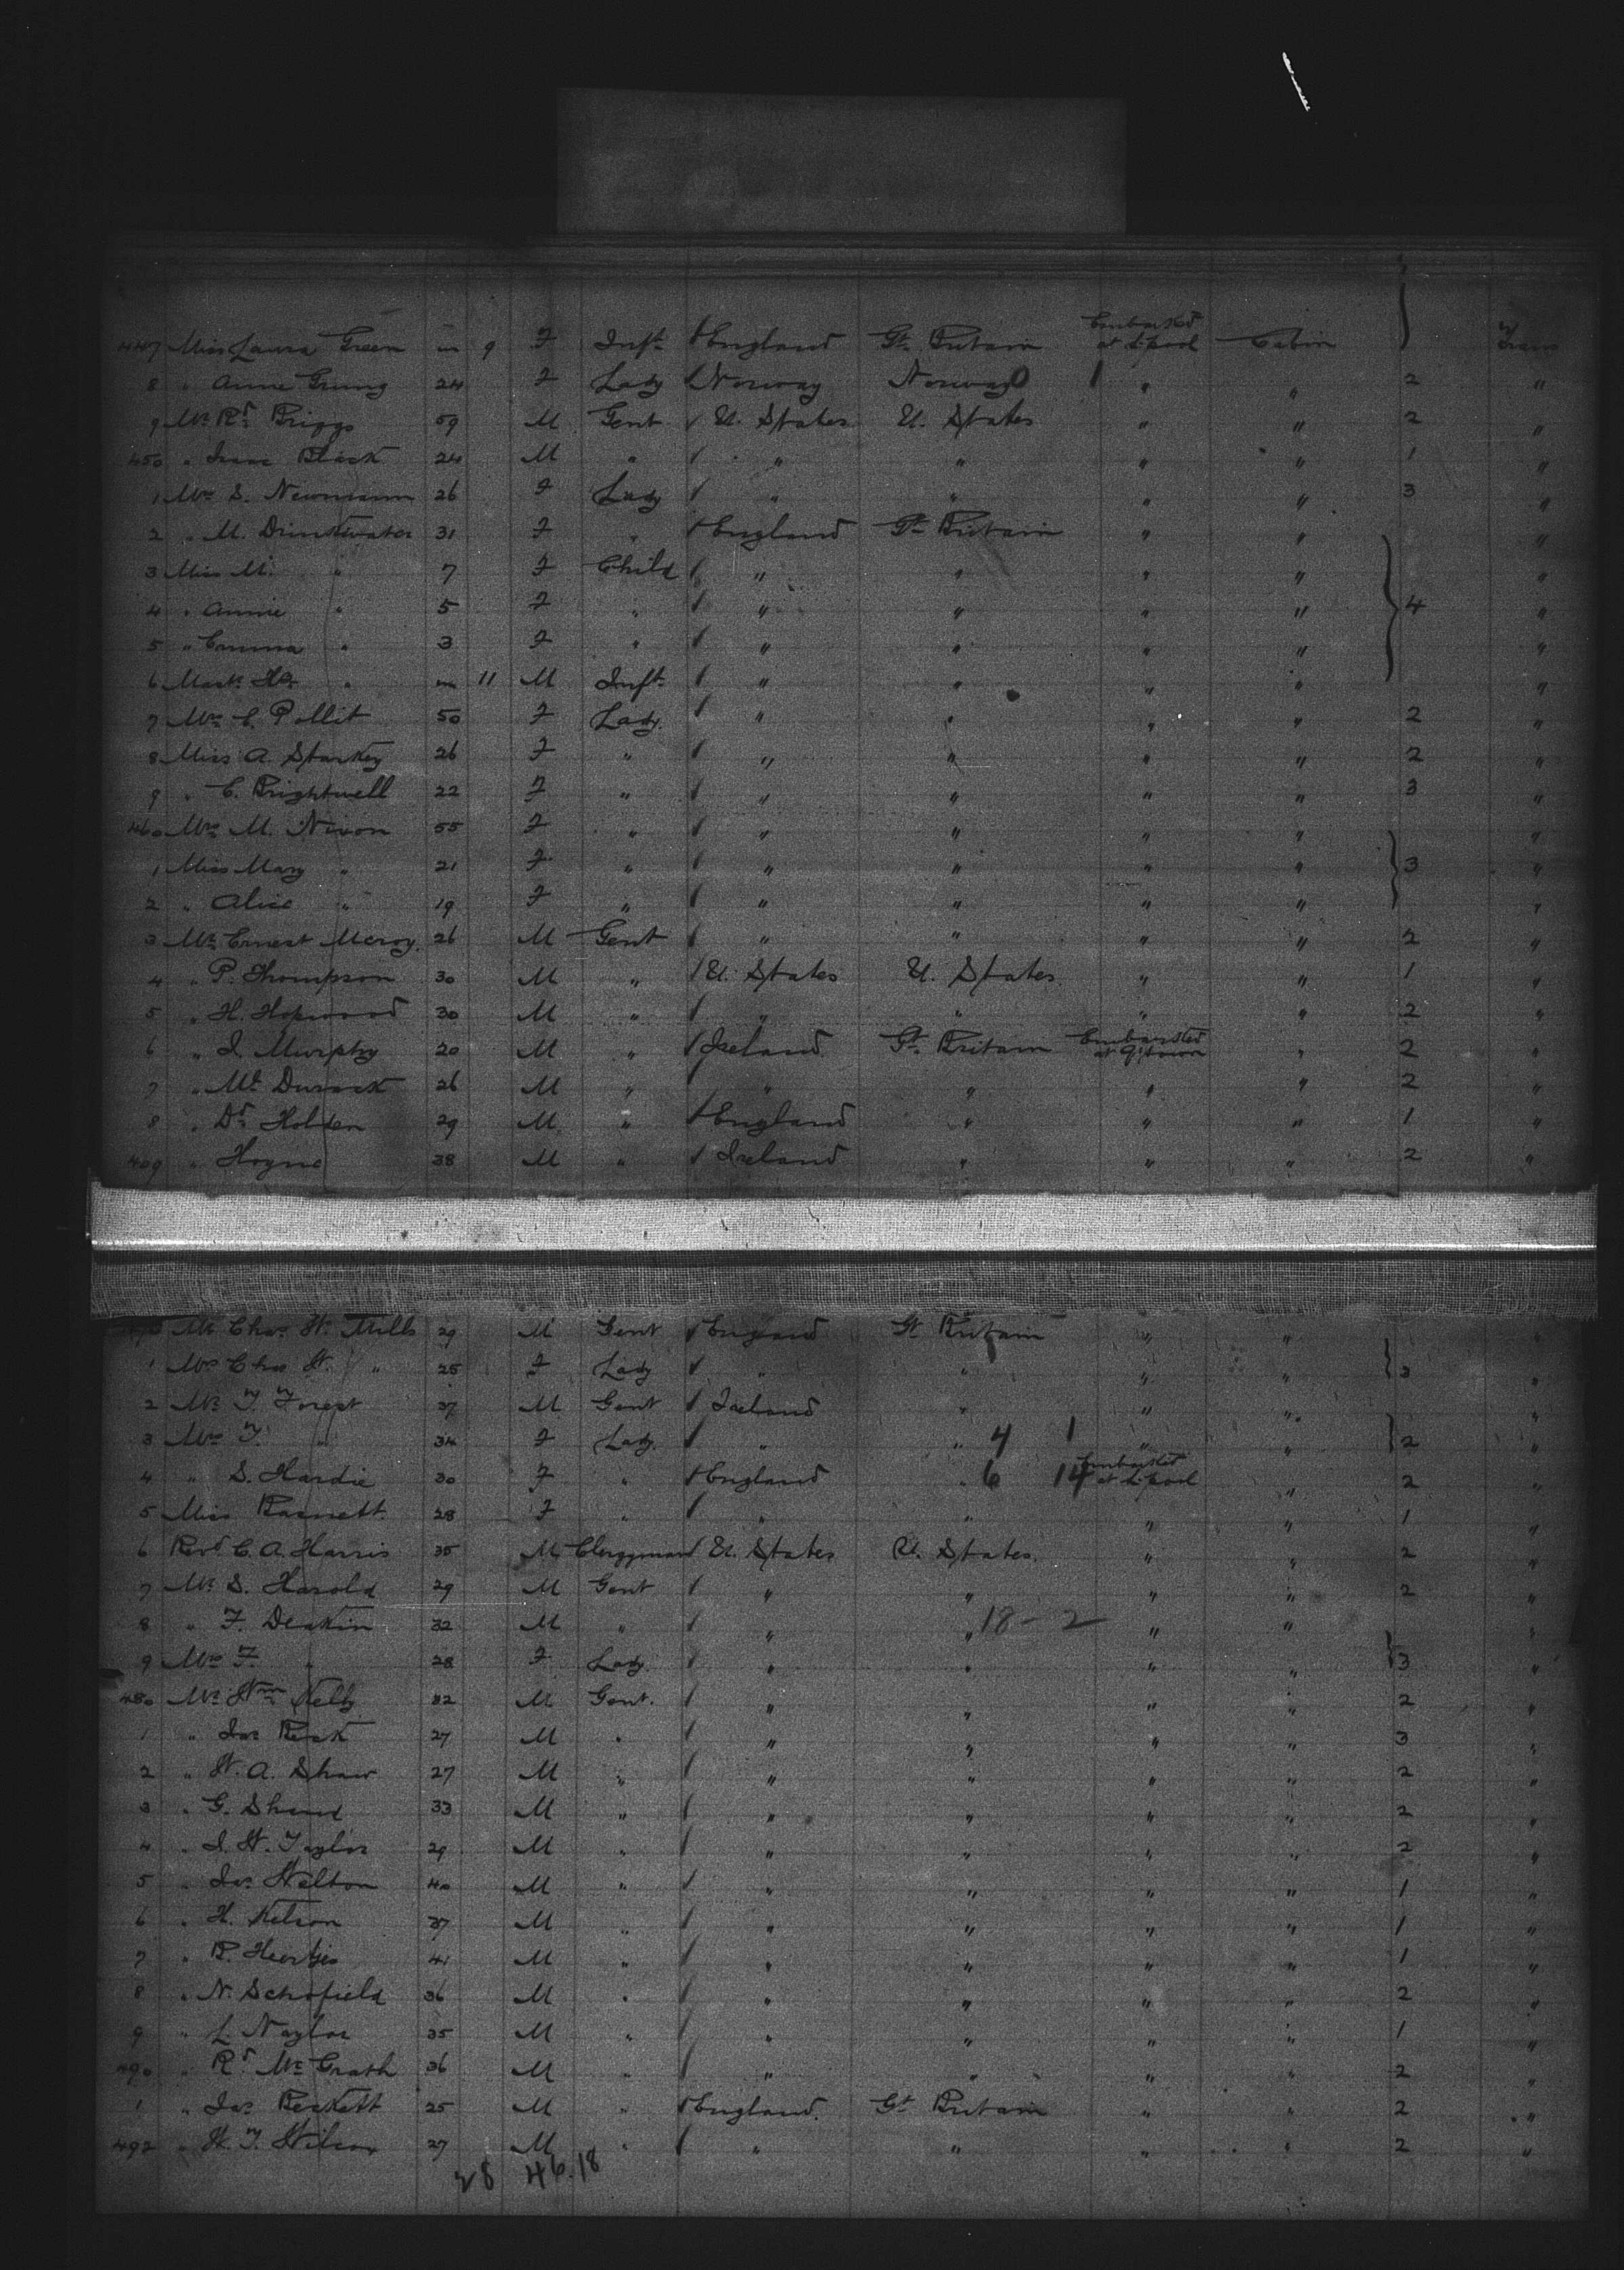 447 Miss Laura Green in 9 F Inft England Gt. Britain Embarked at L'pool Cabin Trans
8 " Annie Grung 24 F Lady Norway Norway 1 " " 2 "
9 Mr. Rd. Briggs 59 M Gent U. States U. States " " 2 "
450 " Isaac Black 24 M " " " " " 1 "
1 Mrs S. Newmann 26 F Lady " " " " 3 "
2 " M. Drinkwater 31 F " England Gt. Britain " " "
3 Miss M. " 7 F Child " " " " "
4 " Annie " 5 F " " " " " 4 "
5 " Emma " 3 F " " " " " "
6 Mast. " in 11 M Inft. " " " " "
7 Mrs E. Pollit 50 F Lady. " " " " 2 "
8 Miss A. Starkey 26 F " " " " " 2 "
9 " E. Brightwell 22 F " " " " " 3 "
460 Mrs M. Nixon 55 F " " " " " "
1 Miss Mary " 21 F " " " " " 3 "
2 " Alice " 19 F " " " " " "
3 Mr. Ernest Meroy. 26 M Gent " " " " 2 "
4 " P. Thompson 30 M " U. States U. States. " " 1 "
5 " H. Hopwood 30 M " " " " " 2 "
6 " J. Murphy 20 M " Ireland. Gt. Britain Embarked at Q'town " 2 "
7 " Mt. Durack 26 M " " " " " 2 "
8 " Dd. Holden 29 M. " England " " " 1 "
469 " Hogne 38 M " Ireland " " " 2 "
Mr. Chas. H. Mills 29 M Gent England Gt. Britain " " "
1 Mrs Chas H. " 25 F Lady " " " " 3 "
2 Mr. F. Forest 37 M Gent Ireland " " " "
3 Mrs F. " 34 F Lady. " " 4 1 " " 2 "
4 " S. Hardie 30 F " England " 6 14 Embarked at L'pool " 2 "
5 Miss Barnett. 28 F " " " " " 1 "
6 Revd. C. A. Harris 35 M Clergyman U. States U. States. " " 2 "
7 Mr. S. Harold 29 M Gent " " " " 2 "
8 " F. Deakin 32 M " " " 18 - 2 " " "
9 Mrs F. " 28 F Lady. " " " " 3 "
480 Mr. Wm. Kelly 32 M Gent. " " " " 2 "
1 " Jas. Beck 27 M " " " " " 3 "
2 " W. A. Shaw 27 M " " " " " 2 "
3 " G. Shand 33 M " " " " " 2 "
4 " J. W. Taylor 29 M " " " " " 2 "
5 " Jas. Welton 40 M " " " " " 1 "
6 " H. Kelson 37 M " " " " " 1 "
7 " B. Heertjes 41 M " " " " " 1 "
8 " N. Schofield 36 M " " " " " 2 "
9 " L. Naylor 35 M " " " " " 1 "
490 " Rd. Mc. Grath 36 M " " " " " 2 "
1 " Jas. Beckett 25 M " England. Gt. Britain " " 2 "
492 " H. F. Wilson 27 M " " " " " 2 "
28 46.18